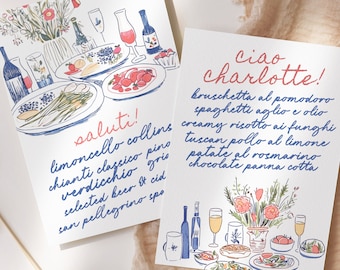 saluti!
limoncello collins
chianti classico pino
verdicchio gri
selected beer & cid
san pellegrino spa
ciao
charlotte!
bruschetta al pomodoro
spaghetti aglio e olio
creamy risotto ai funghi
tuscan pollo al limone
patate al rosmarino
chocolate panna cotta